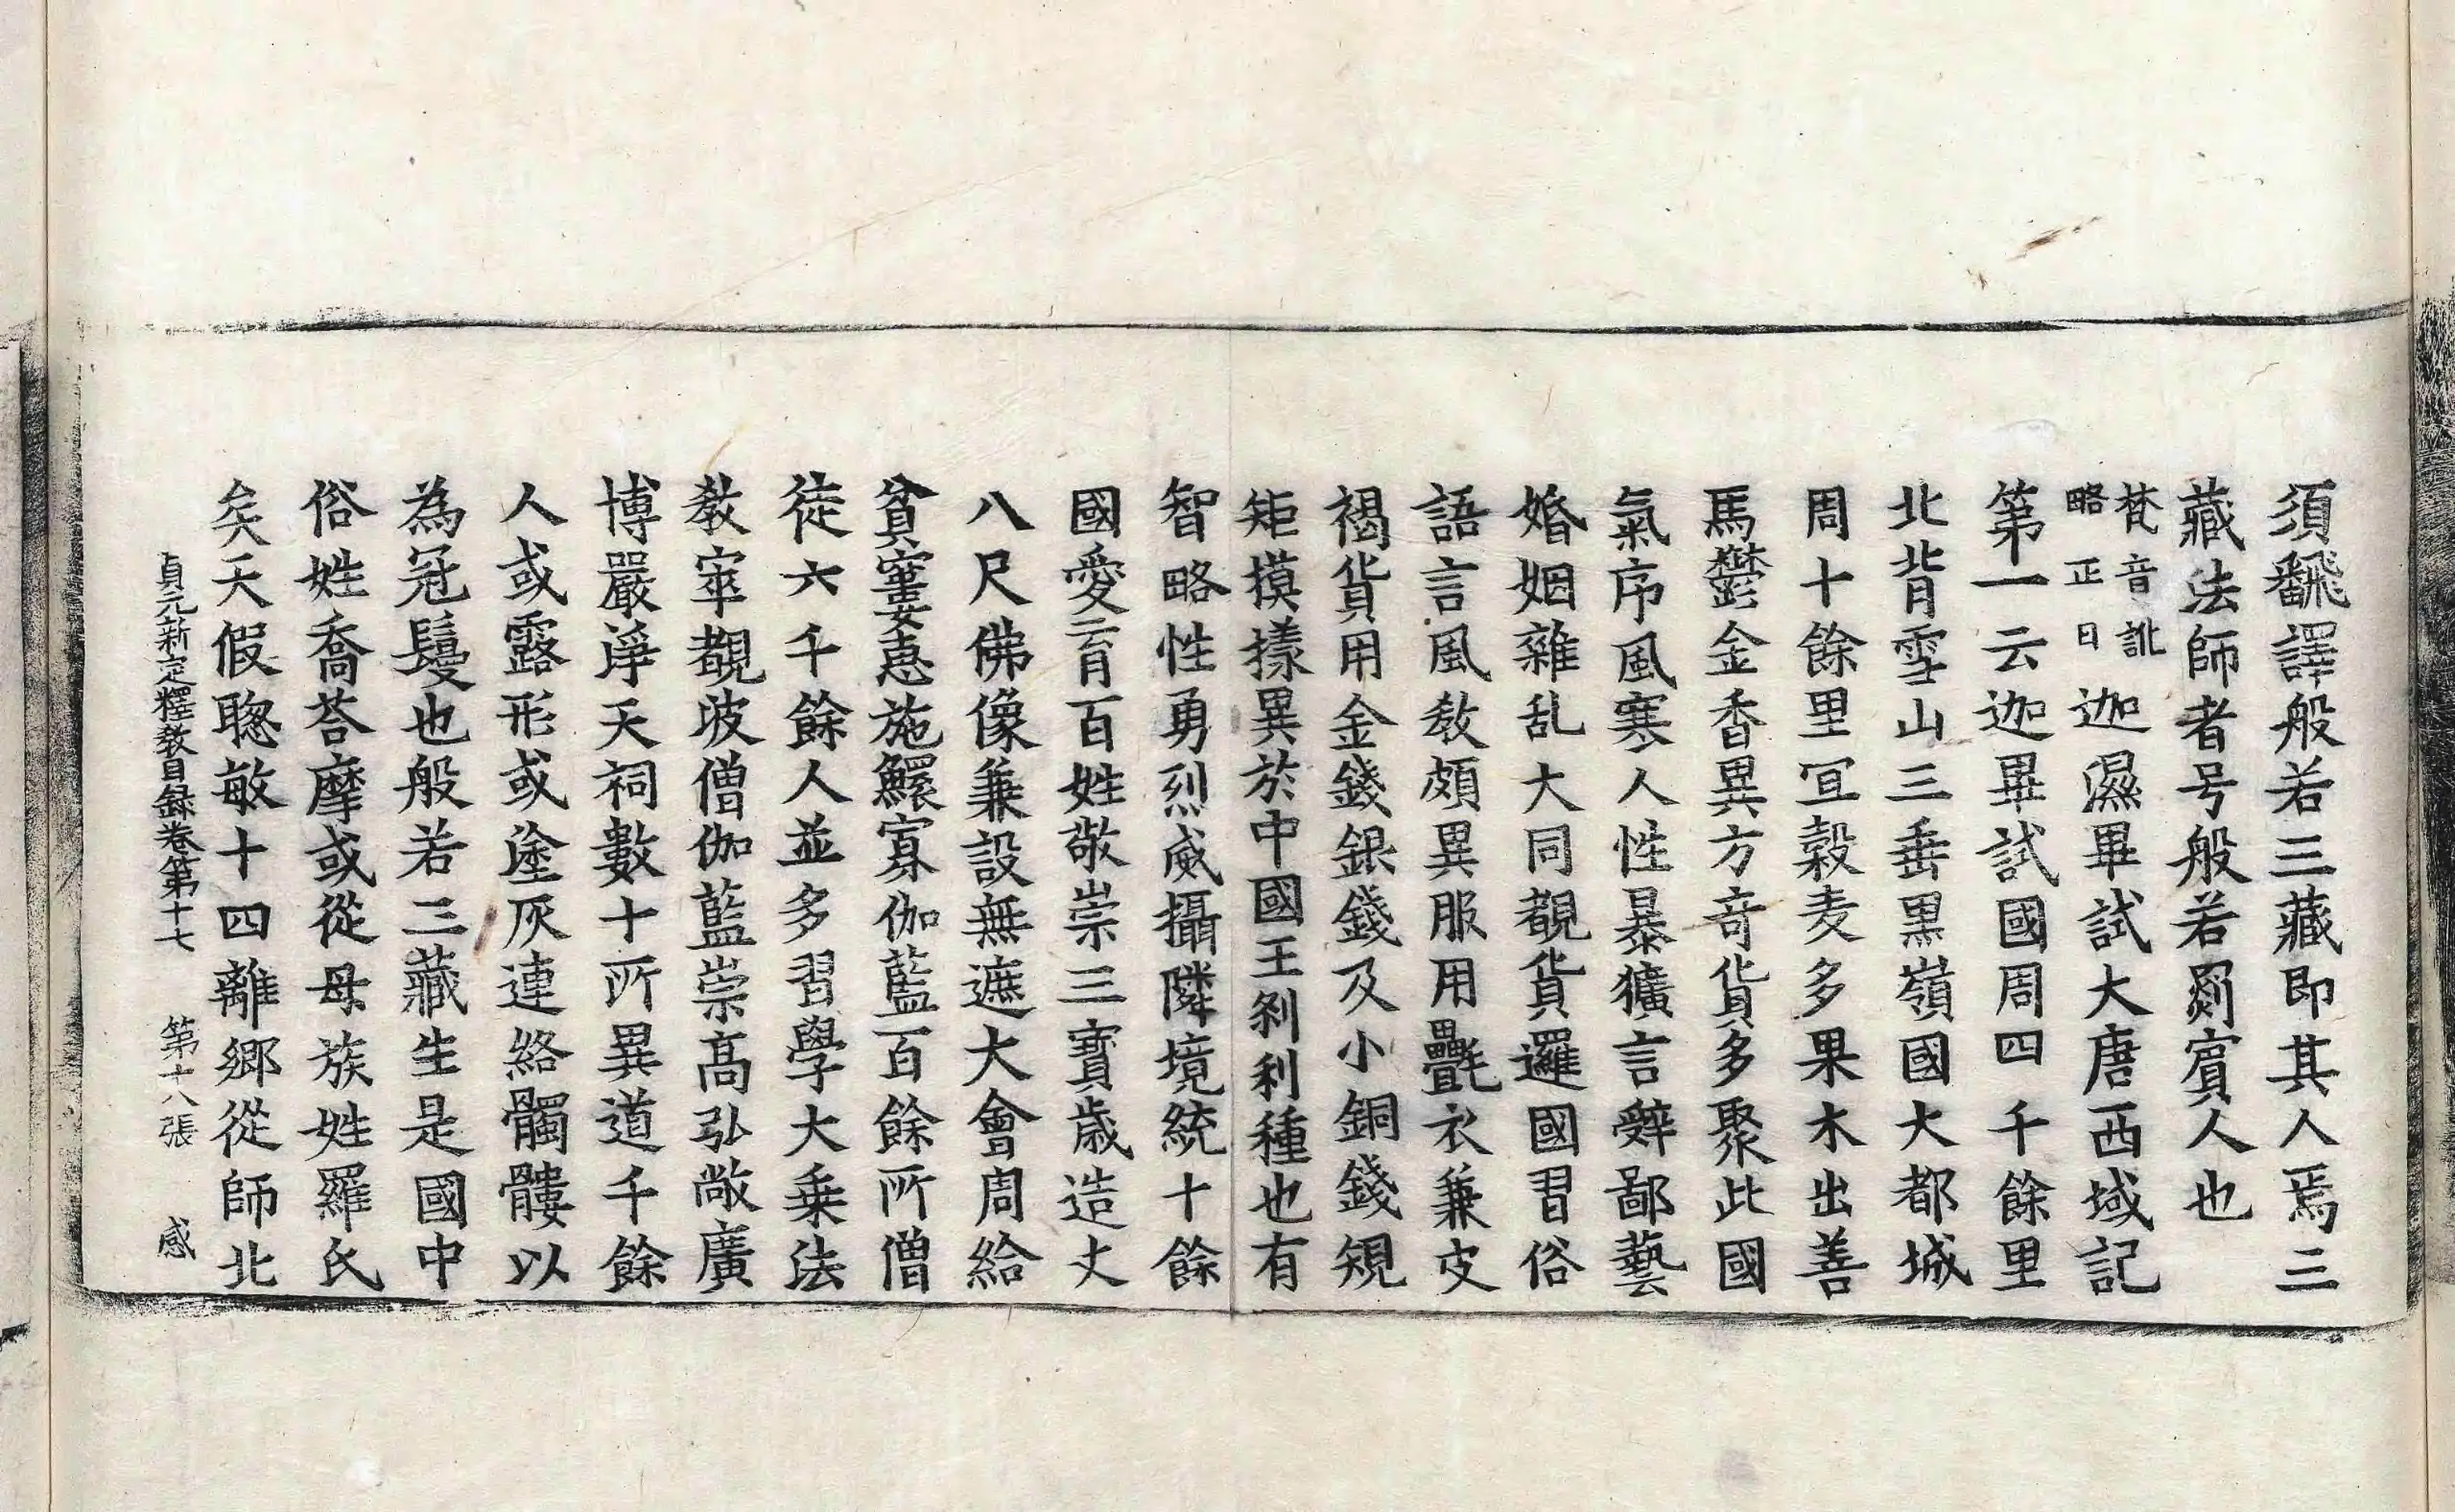 須飜譯般若三藏即其人焉三
藏法師者号般若罽賓人也
梵音訛
略正曰
迦濕畢試大唐西域記
第一云迦畢試國周四千餘里
北背雪山三垂黒嶺國大都城
周十餘里宜穀麦多果木出善
馬鬱金香異方竒貨多聚此國
氣序風寒人性暴獷言辤鄙藝
婚姻雜乱大同覩貨邏國習俗
語言風敎頗異服用㲲衣兼皮
褐貨用金錢銀錢及小銅錢䂓
矩摸㨾異於中國王刹利種也有
智略性勇烈威攝隣境統十餘
國愛育百姓敬崇三寶歲造丈
八尺佛像兼設無遮大會周給
貧窶惠施鰥寡伽藍百餘所僧
徒六千餘人並多習學大乗法
敎窣覩波僧伽藍崇髙弘敞廣
博嚴淨天祠數十所異道千餘
人或露形或塗灰連絡髑髏以
為冠鬘也般若三藏生是國中
俗姓喬荅摩或從母族姓羅氏
矣天假聦敏十四離鄉從師北
貞元新定釋敎目録卷第十七 第十八張 感